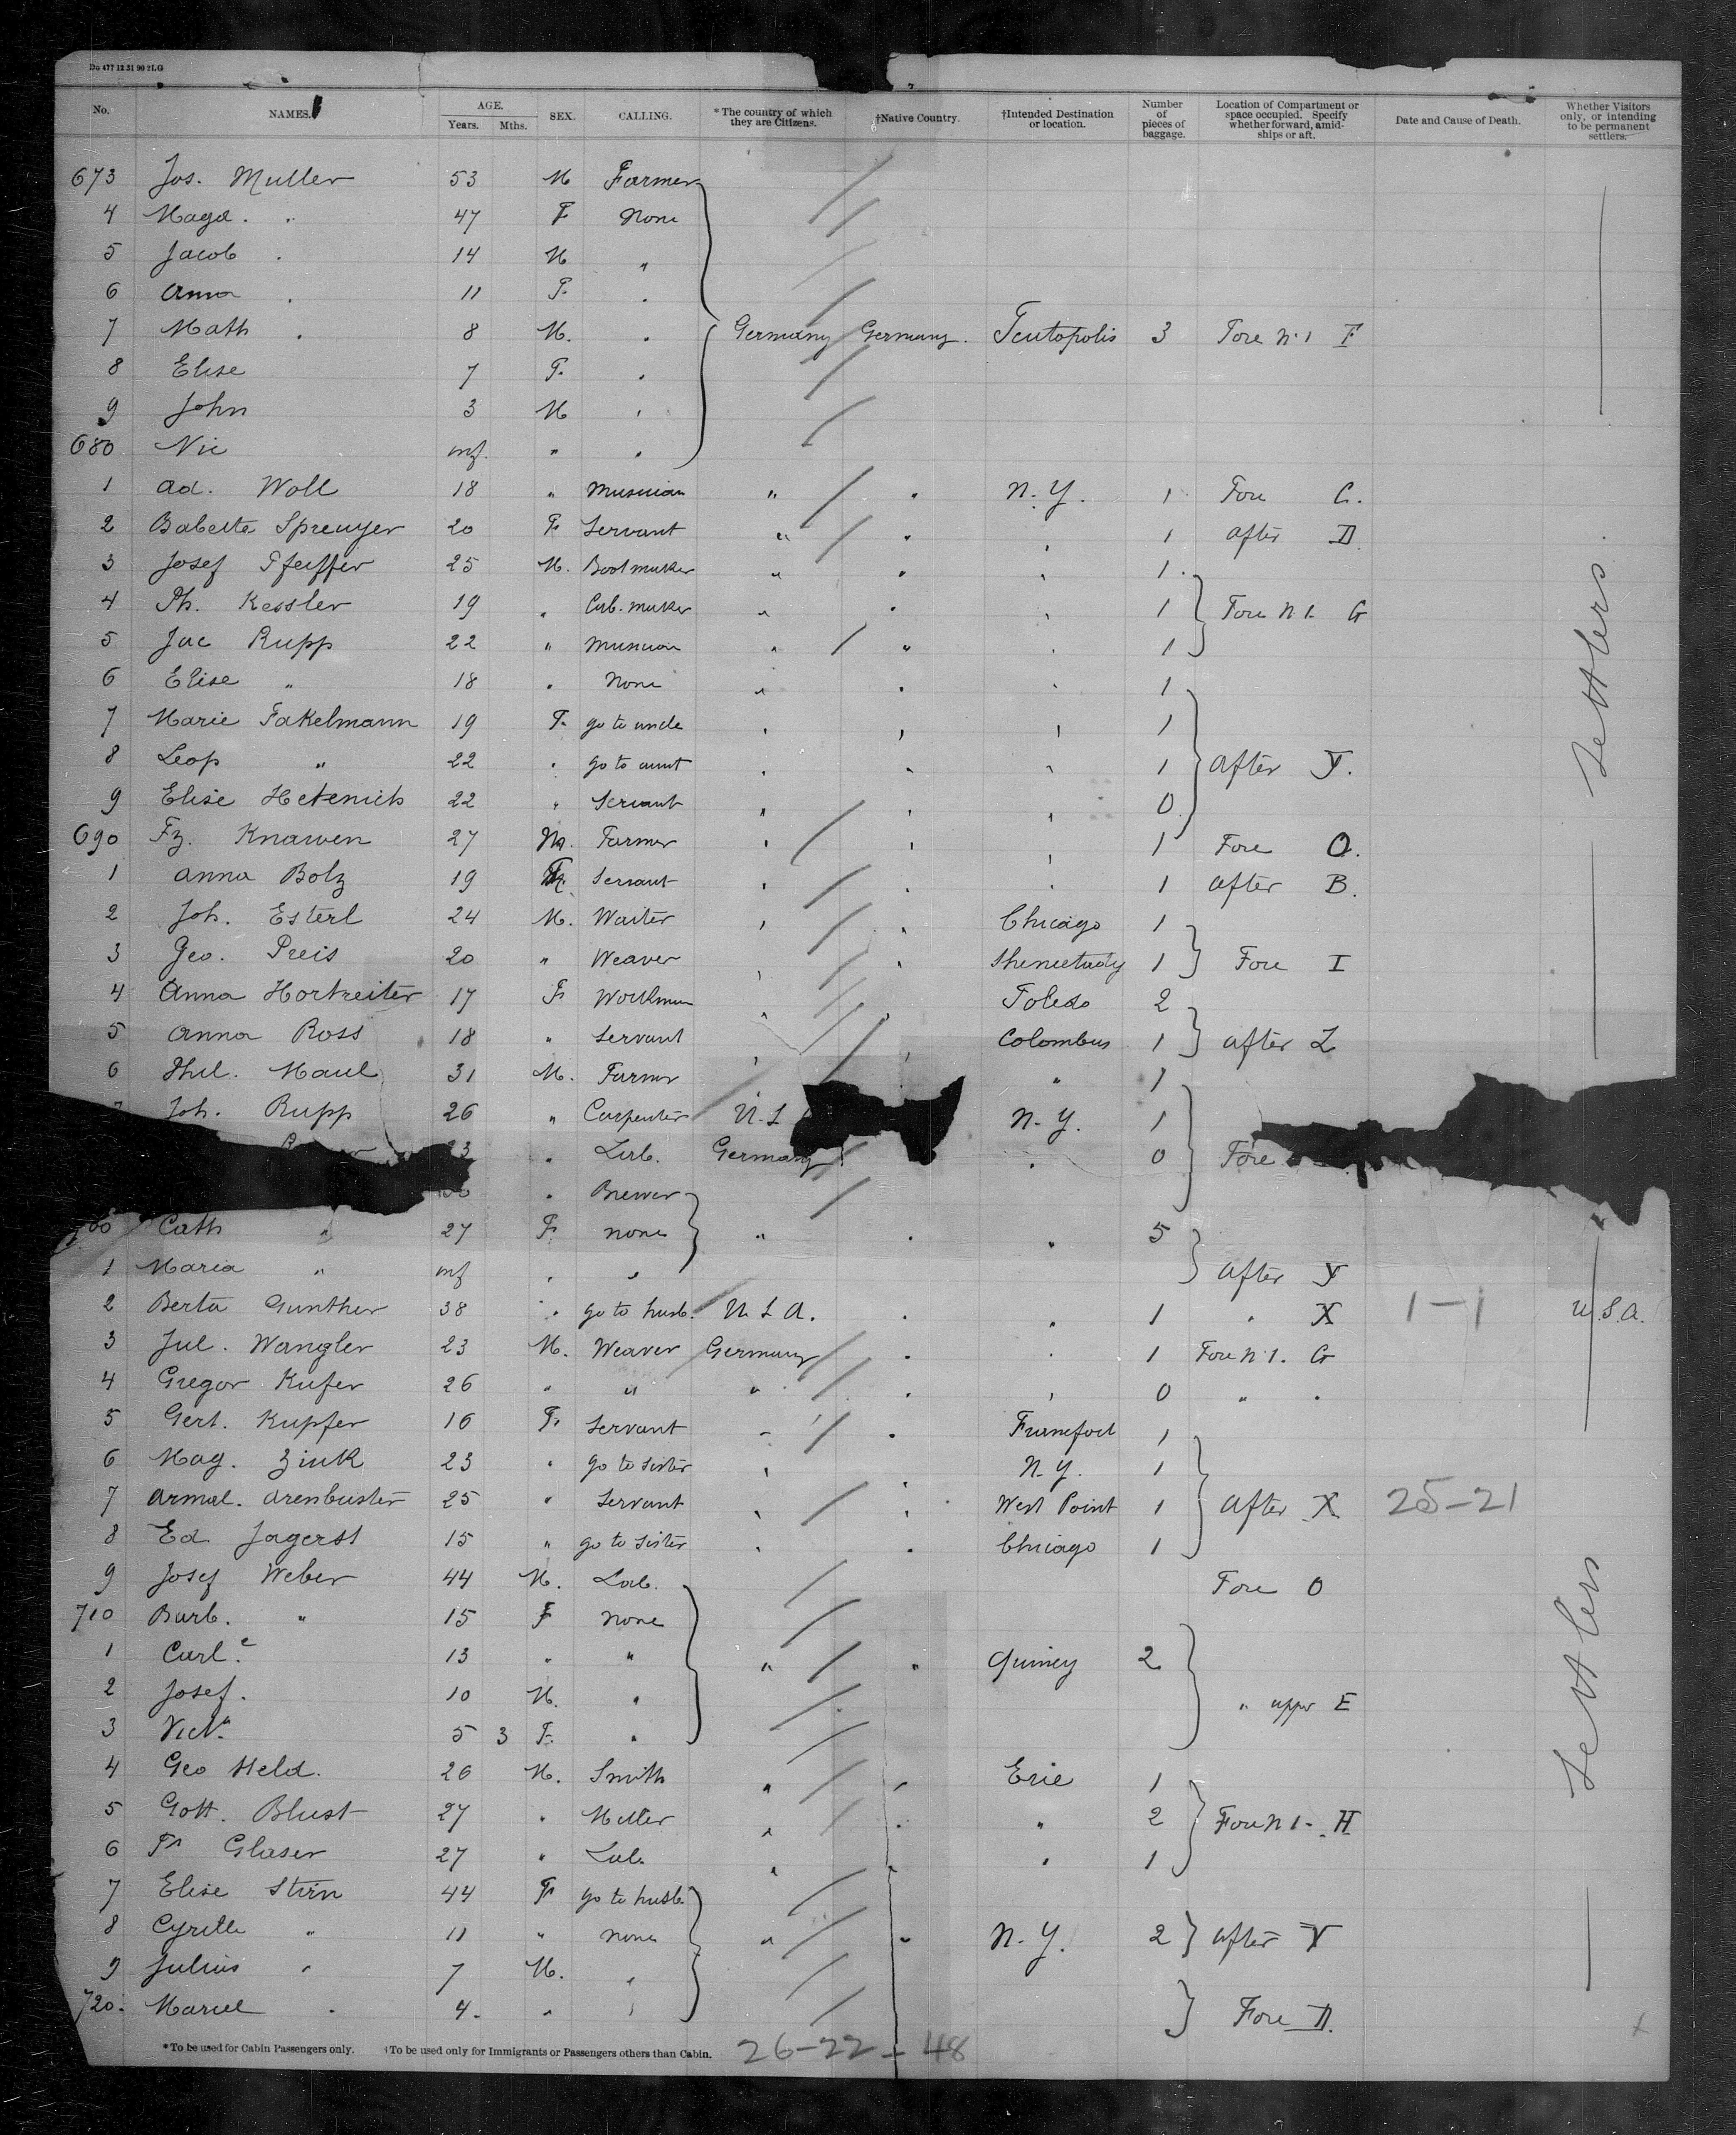 Do 477 12 31 90 2LG
No. NAMES. AGE. Years. Mths. SEX. CALLING. * The country of which they are Citizens. †Native Country. †Intended Destination or location. Number of pieces of baggage. Location of Compartment or space occupied. Specify whether forward, amid-ships or aft. Date and Cause of Death. Whether Visitors only, or intending to be permanent settlers.
673 Jos. Muller 53 M Farmer
4 Magd. " 47 F None
5 Jacob " 14 M "
6 Anna " 11 F. "
7 Math " 8 M. " Germany Germany. Teutopolis 3 Fore N.1 F
8 Elise 7 F. "
9 John 3 M "
680 Nic inf. " "
1 Ad. Woll 18 " Musician " " N.Y. 1 Fore C.
2 Babette Sprenger 20 F. Servant " " " 1 After D.
3 Josef Pfeiffer 25 M. Bootmaker " " " 1
4 Ph. Kessler 19 " Cab. maker " " " 1 Fore N 1. G
5 Jac Rupp 22 " Musician " " " 1
6 Elise " 18 " None " " " 1
7 Marie Fakelmann 19 F. go to uncle " " " 1
8 Leop " 22 " go to aunt " " " 1 After Y.
9 Elise Hetenich 22 " Servant " " " 0
690 Fz. Knawen 27 M. Farmer " " " 1 Fore O.
1 Anna Bolz 19 F. Servant " " " 1 After B.
2 Joh. Esterl 24 M. Waiter " " Chicago 1
3 Geo. Preis 20 " Weaver " " Shenectady 1 Fore I
4 Anna Hortreiter 17 F. Workman " " Toledo 2
5 Anna Ross 18 " Servant " " Colombus 1 After Z
6 Phil. Maul 31 M. Farmer " 1
Joh. Rupp 26 " Carpenter U.S N.Y. 1
" Lab. Germany " 0 Fore
" Brewer
Cath " 27 F. none " " " 5
1 Maria " inf " " After Y
2 Berta Gunther 38 " go to husb. U.S.A. " " 1 " X 1-1 U.S.A.
3 Jul. Wangler 23 M. Weaver Germany " " 1 Fore N 1. G
4 Gregor Kufer 26 " " " " " 0 " "
5 Gert. Kupfer 16 F. Servant " " Frankfort 1
6 Mag. Zink 23 " go to sister " " N.Y. 1
7 Armal. Arenbuster 25 " Servant " " West Point 1 After X 25-21
8 Ed Jagerst 15 " go to sister " " Chicago 1
9 Josef Weber 44 M. Lab. Fore O
710 Barb. " 15 F none
1 Carl.e 13 " " " " Quincy 2
2 Josef. 10 M. " " upper E
3 Vict.a 5 3 F. "
4 Geo Held. 26 M. Smith " " Erie 1
5 Gott. Blust 27 " Miller " " " 2 Fore N 1- H
6 Fr Glaser 27 " Lab. " " " 1
7 Elise Stirn 44 F. go to husb.
8 Cyrille " 11 " none " " N.Y. 2 After V
9 Julius " 7 M. "
720. Marcel " 4. " " Fore D.
Settlers
Settlers
*To be used for Cabin Passengers only. †To be used only for Immigrants or Passengers others than Cabin. 26-22-48